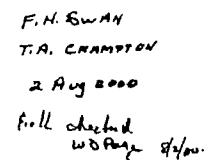 F.H. SWAN
T.A. CRAMPTON
2 Aug 2000
checked
WD Page 8/2/00.